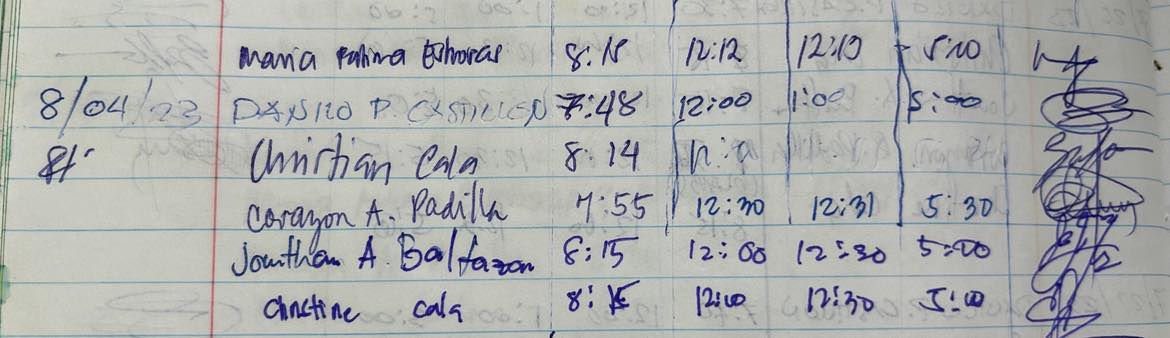 Maria Fatima 8:15 12:12 12:13 5:00
8/04/23 DANILO P. CASTILLON 7:48 12:00 1:00 5:00
Christian Cala 8:14
Corazon A. Padilla 7:55 12:30 12:31 5:30
Jonathan A Baltazar 8:15 12:00 12:30 5:00
Christine cala 8:15 12:00 12:30 5:00